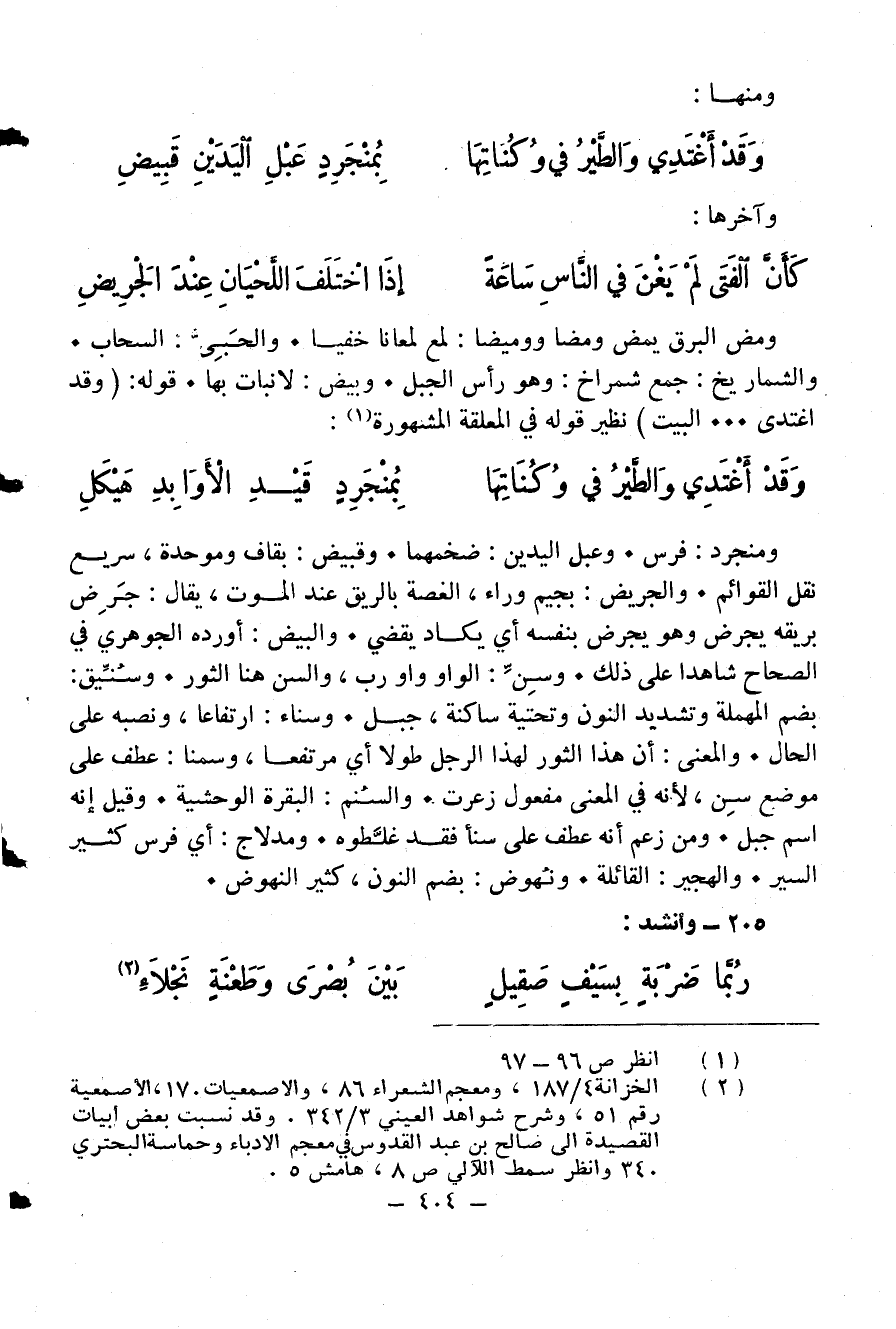 ومنهـا :
وَقَدْ أَغْتَدِي وَالطَّيْرُ في وُكُنَاتِهَا بِمُنْجَرِدٍ عَبْلِ ٱليَدَيْنِ قَبِيضِ
وآخرها :
كَأَنَّ ٱلفَتَى لَمْ يَغْنَ في النَّاسِ سَاعَةً إذَا اخْتَلَفَ اللَّحْيَانِ عِنْدَ الْجَرِيضِ
ومض البرق يمض ومضا ووميضا : لمع لمعانا خفيـا ٠ والحَبِيّ : السحاب ٠
والشماريخ : جمع شمراخ : وهو رأس الجبل ٠ وبيض : لانبات بها ٠ قوله: ( وقد
اغتدى ٠٠٠ البيت ) نظير قوله في المعلقة المشهورة(١) :
وَقَدْ أَغْتَدِي وَالطَّيْرُ في وُكُنَاتِهَا بِمُنْجَرِدٍ قَيْـدِ الْأَوَابِدِ هَيْكَلِ
ومنجرد : فرس ٠ وعبل اليدين : ضخمهما ٠ وقبيض : بقاف وموحدة ، سريـع
نقل القوائم ٠ والجريض : بجيم وراء ، الغصة بالريق عند المـوت ، يقال : جَرِض
بريقه يجرض وهو يجرض بنفسه أي يكـاد يقضي ٠ والبيض : أورده الجوهري في
الصحاح شاهدا على ذلك ٠ وسِنٍّ : الواو واو رب ، والسن هنا الثور ٠ وسُنَّيق:
بضم المهملة وتشديد النون وتحتية ساكنة ، جبـل ٠ وسناء : ارتفاعا ، ونصبه على
الحال ٠ والمعنى : أن هذا الثور لهذا الرجل طولا أي مرتفعـا ، وسمنا : عطف على
موضع سِن ، لأنه في المعنى مفعول زعرت ٠ والسُنم : البقرة الوحشية ٠ وقيل إنه
اسم جبل ٠ ومن زعم أنه عطف على سنأ فقـد غلَّطوه ٠ ومدلاج : أي فرس كثـير
السير ٠ والهجير : القائلة ٠ ونَهوض : بضم النون ، كثير النهوض ٠
٢٠٥ ــ وأنشد :
رُبَّمَا ضَرْبَةٍ بِسَيْفٍ صَقِيلٍ بَيْنَ بُصْرَى وَطَعْنَةٍ نَجْلَاءِ(٢)
( ١ ) انظر ص ٩٦ ــ ٩٧
( ٢ ) الخزانة ١٨٧/٤ ، ومعجم الشعراء ٨٦ ، والاصمعيات ١٧٠ ،الأصمعية
رقم ٥١ ، وشرح شواهد العيني ٣٤٢/٣ . وقد نسبت بعض أبيات
القصيدة الى صالح بن عبد القدوس في معجم الادباء وحماسة البحتري
٣٤٠ وانظر سمط اللآلي ص ٨ ، هامش ٥ .
ــ ٤٠٤ ــ